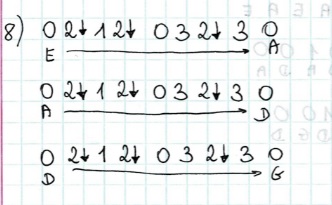 8) 0 2↓ 1 2↓ 0 3 2↓ 3 0
E → A
0 2↓ 1 2↓ 0 3 2↓ 3 0
A → D
0 2↓ 1 2↓ 0 3 2↓ 3 0
D → G